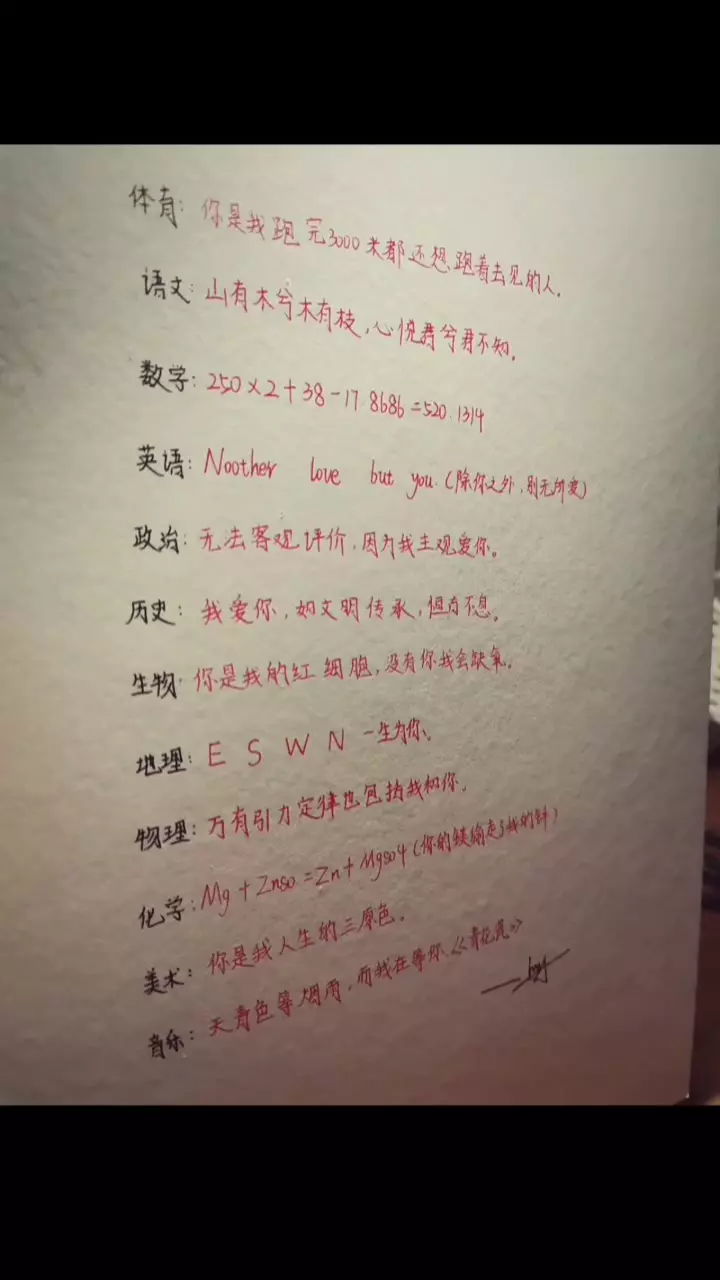 体育：你是我跑完3000米都还想跑着去见的人。
语文：山有木兮木有枝，心悦君兮君不知。
数学：250×2+38-17.8686=520.1314
英语：Noother love but you.（除你之外，别无所爱）
政治：无法客观评价，因为我主观爱你。
历史：我爱你，如文明传承，恒古不息。
生物：你是我的红细胞，没有你我会缺氧。
地理：E S W N 一生为你。
物理：万有引力定律也包括我和你。
化学：Mg+Znso=Zn+Mgso4（你的镁偷走了我的锌）
美术：你是我人生的三原色。
音乐：天青色等烟雨，而我在等你《青花瓷》